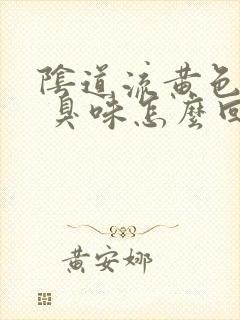 陰道流黃色
臭味怎麼回
黃安娜